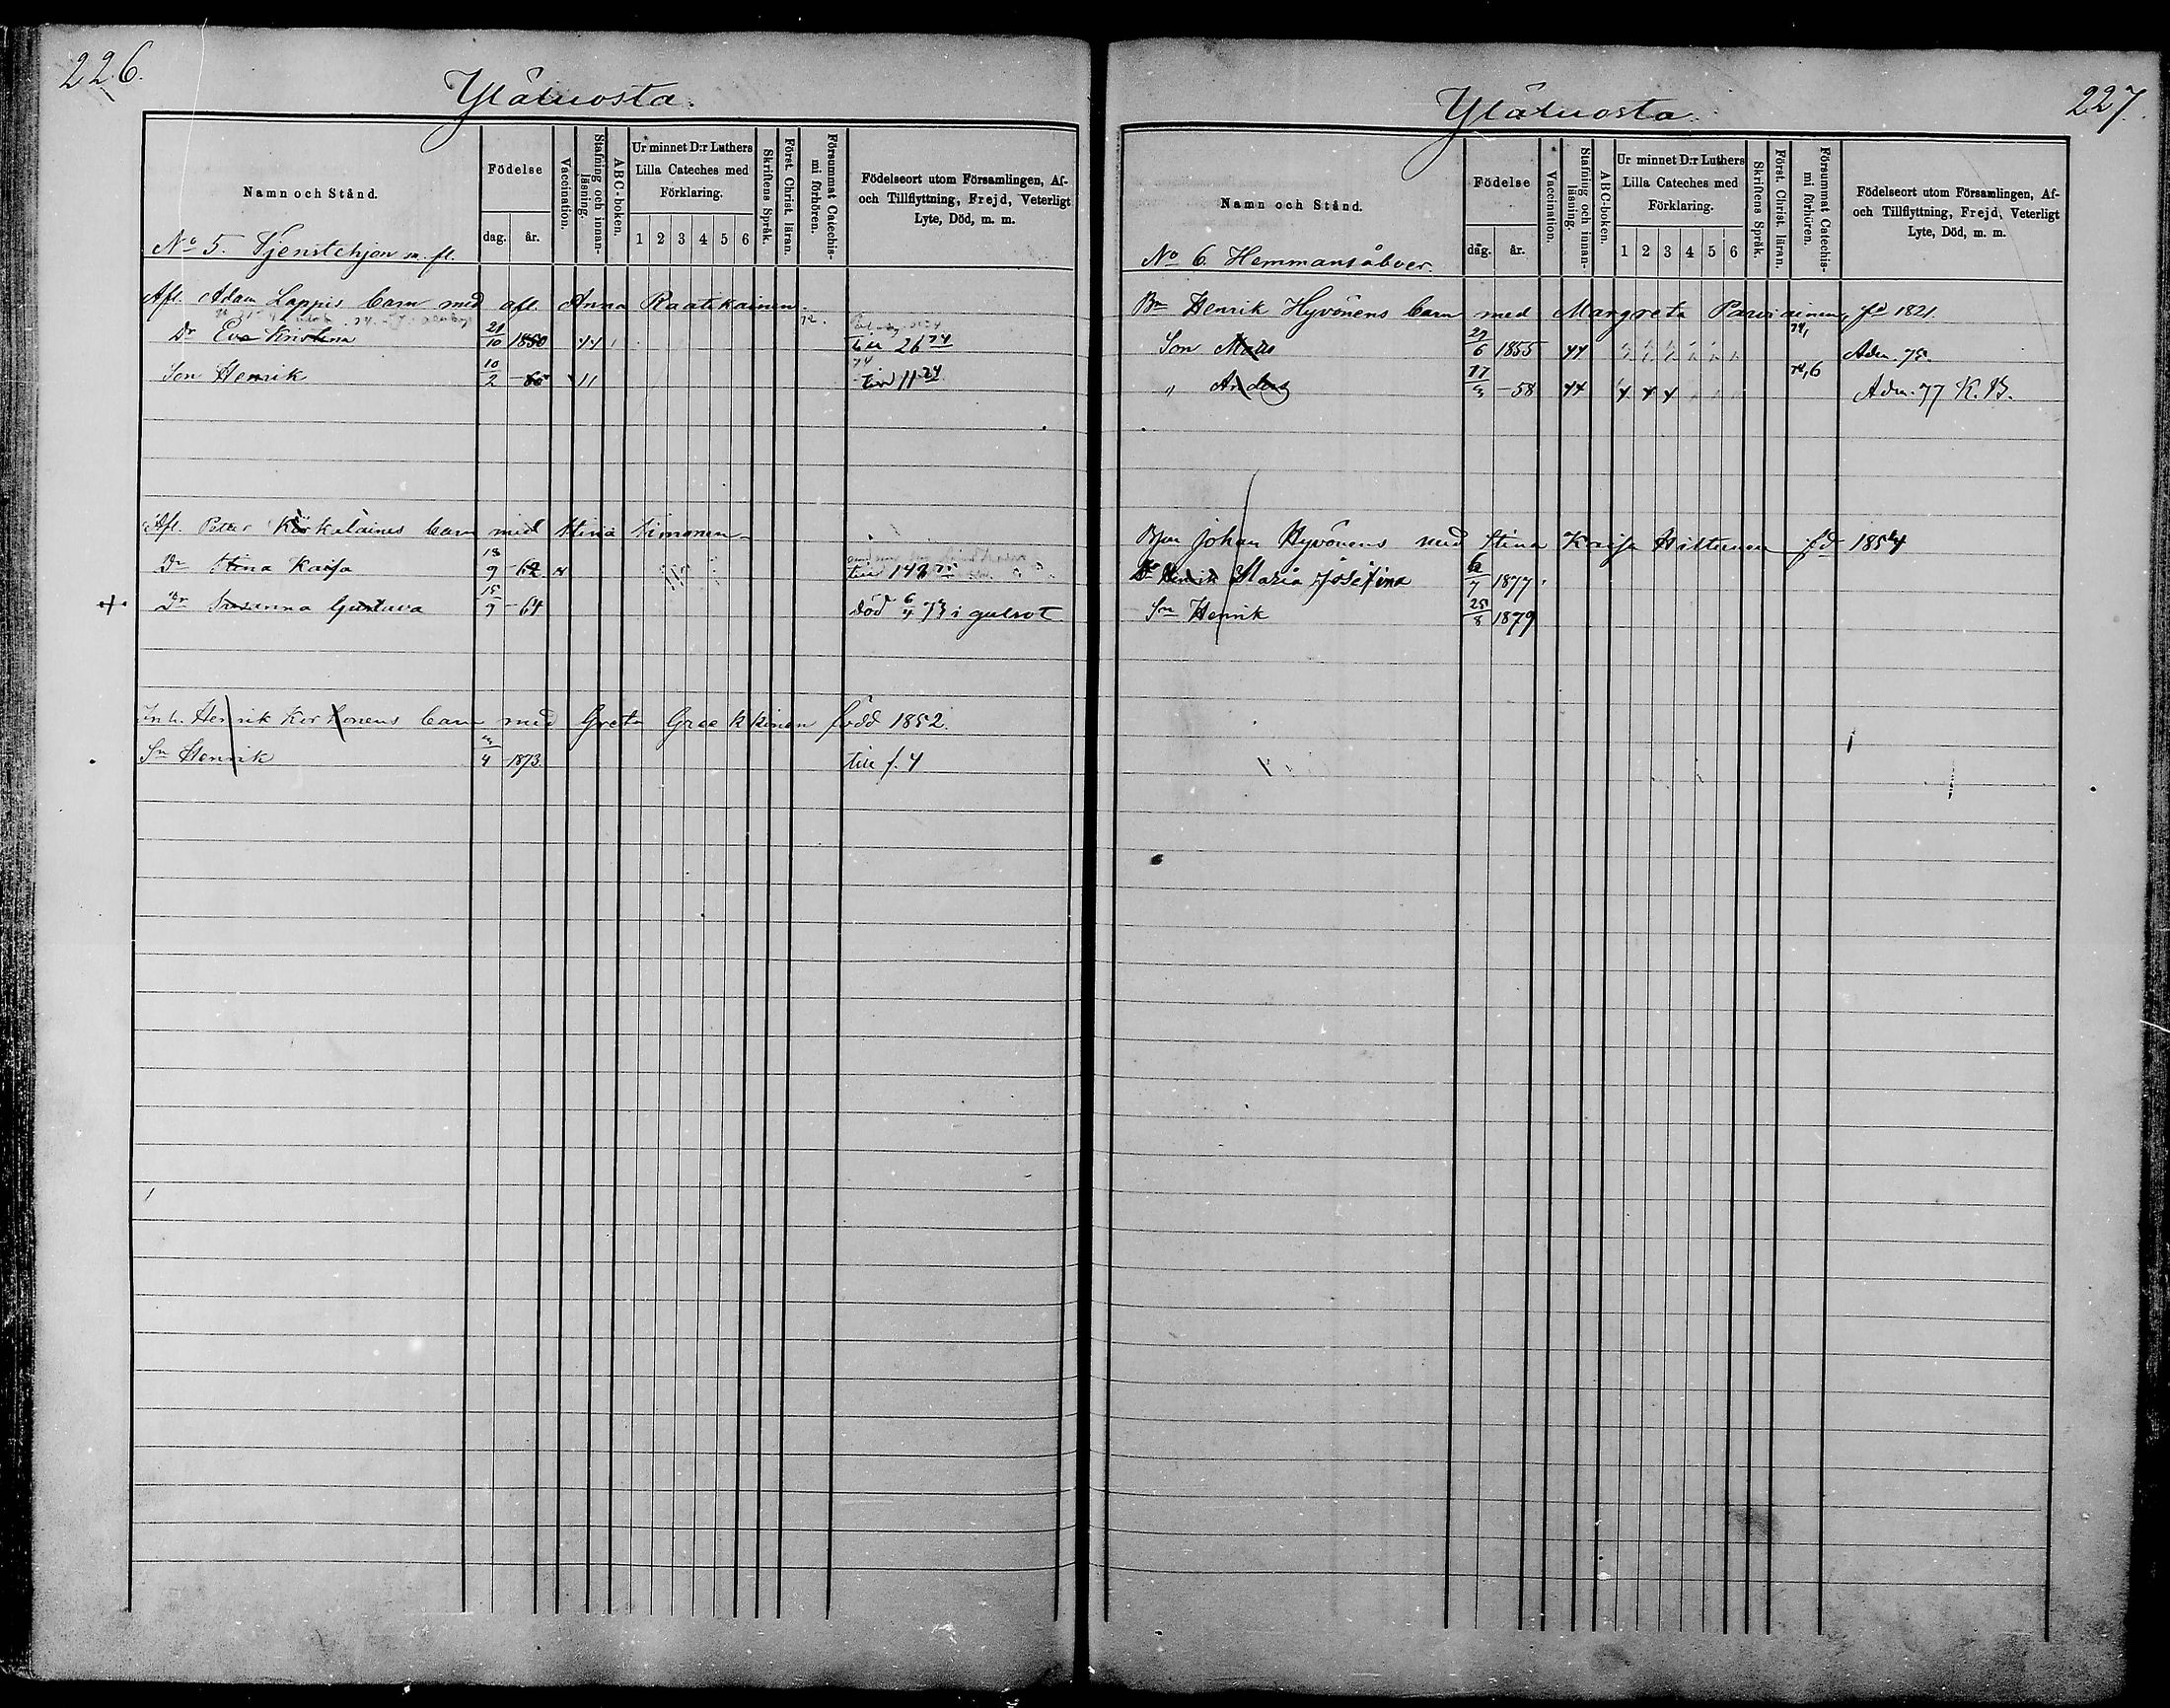 226.
Yläluosta.
Namn och Stånd.
Födelse
dag. år.
Vaccination.
Stafning och innanläsning.
ABC-boken.
Ur minnet D:r Luthers Lilla Cateches med Förklaring.
1 2 3 4 5 6
Skriftens Språk.
Först. Christ. läran.
Försummat Catechismi förhören.
Födelseort utom Församlingen, Af- och Tillflyttning, Frejd, Veterligt Lyte, Död, m. m.
No 5. Tjenstehjon m. fl.
Afl. Adam Lappis barn med afl. Anna Raatikainen.
Dr Eva Kristina 21/10 1850 till 26 74
Son Henrik 10/2 - 65 11 till 11 74
Afl. Petter Körkiläines barn med Stina Simonen
Dr Stina Kaisa 18/9 - 62 till 146 75
Dr Susanna Gustava 15/9 - 64 död 6/4 73 i gulsot
Inh. Henrik Korhonens barn med Greta Graekkinen född 1852.
Sn Henrik 3/4 1873. till f. 4
227.
Yläluosta.
Namn och Stånd.
Födelse
dag. år.
Vaccination.
Stafning och innanläsning.
ABC-boken.
Ur minnet D:r Luthers Lilla Cateches med Förklaring.
1 2 3 4 5 6
Skriftens Språk.
Först. Christ. läran.
Försummat Catechismi förhören.
Födelseort utom Församlingen, Af- och Tillflyttning, Frejd, Veterligt Lyte, Död, m. m.
No 6. Hemmansåboer.
Bn Henrik Hyvönens barn med Margreta Parviainen, fd 1821.
Son Mats 29/6 1855 74, Adm. 75.
" Anders 17/3 - 58 74, 6 Adm. 77 K. B.
Johan Hyvönens med Stina Kaisa Hiltunen fd 1854
Dr Maria Josefina 6/7 1877
Sn Henrik 25/8 1879